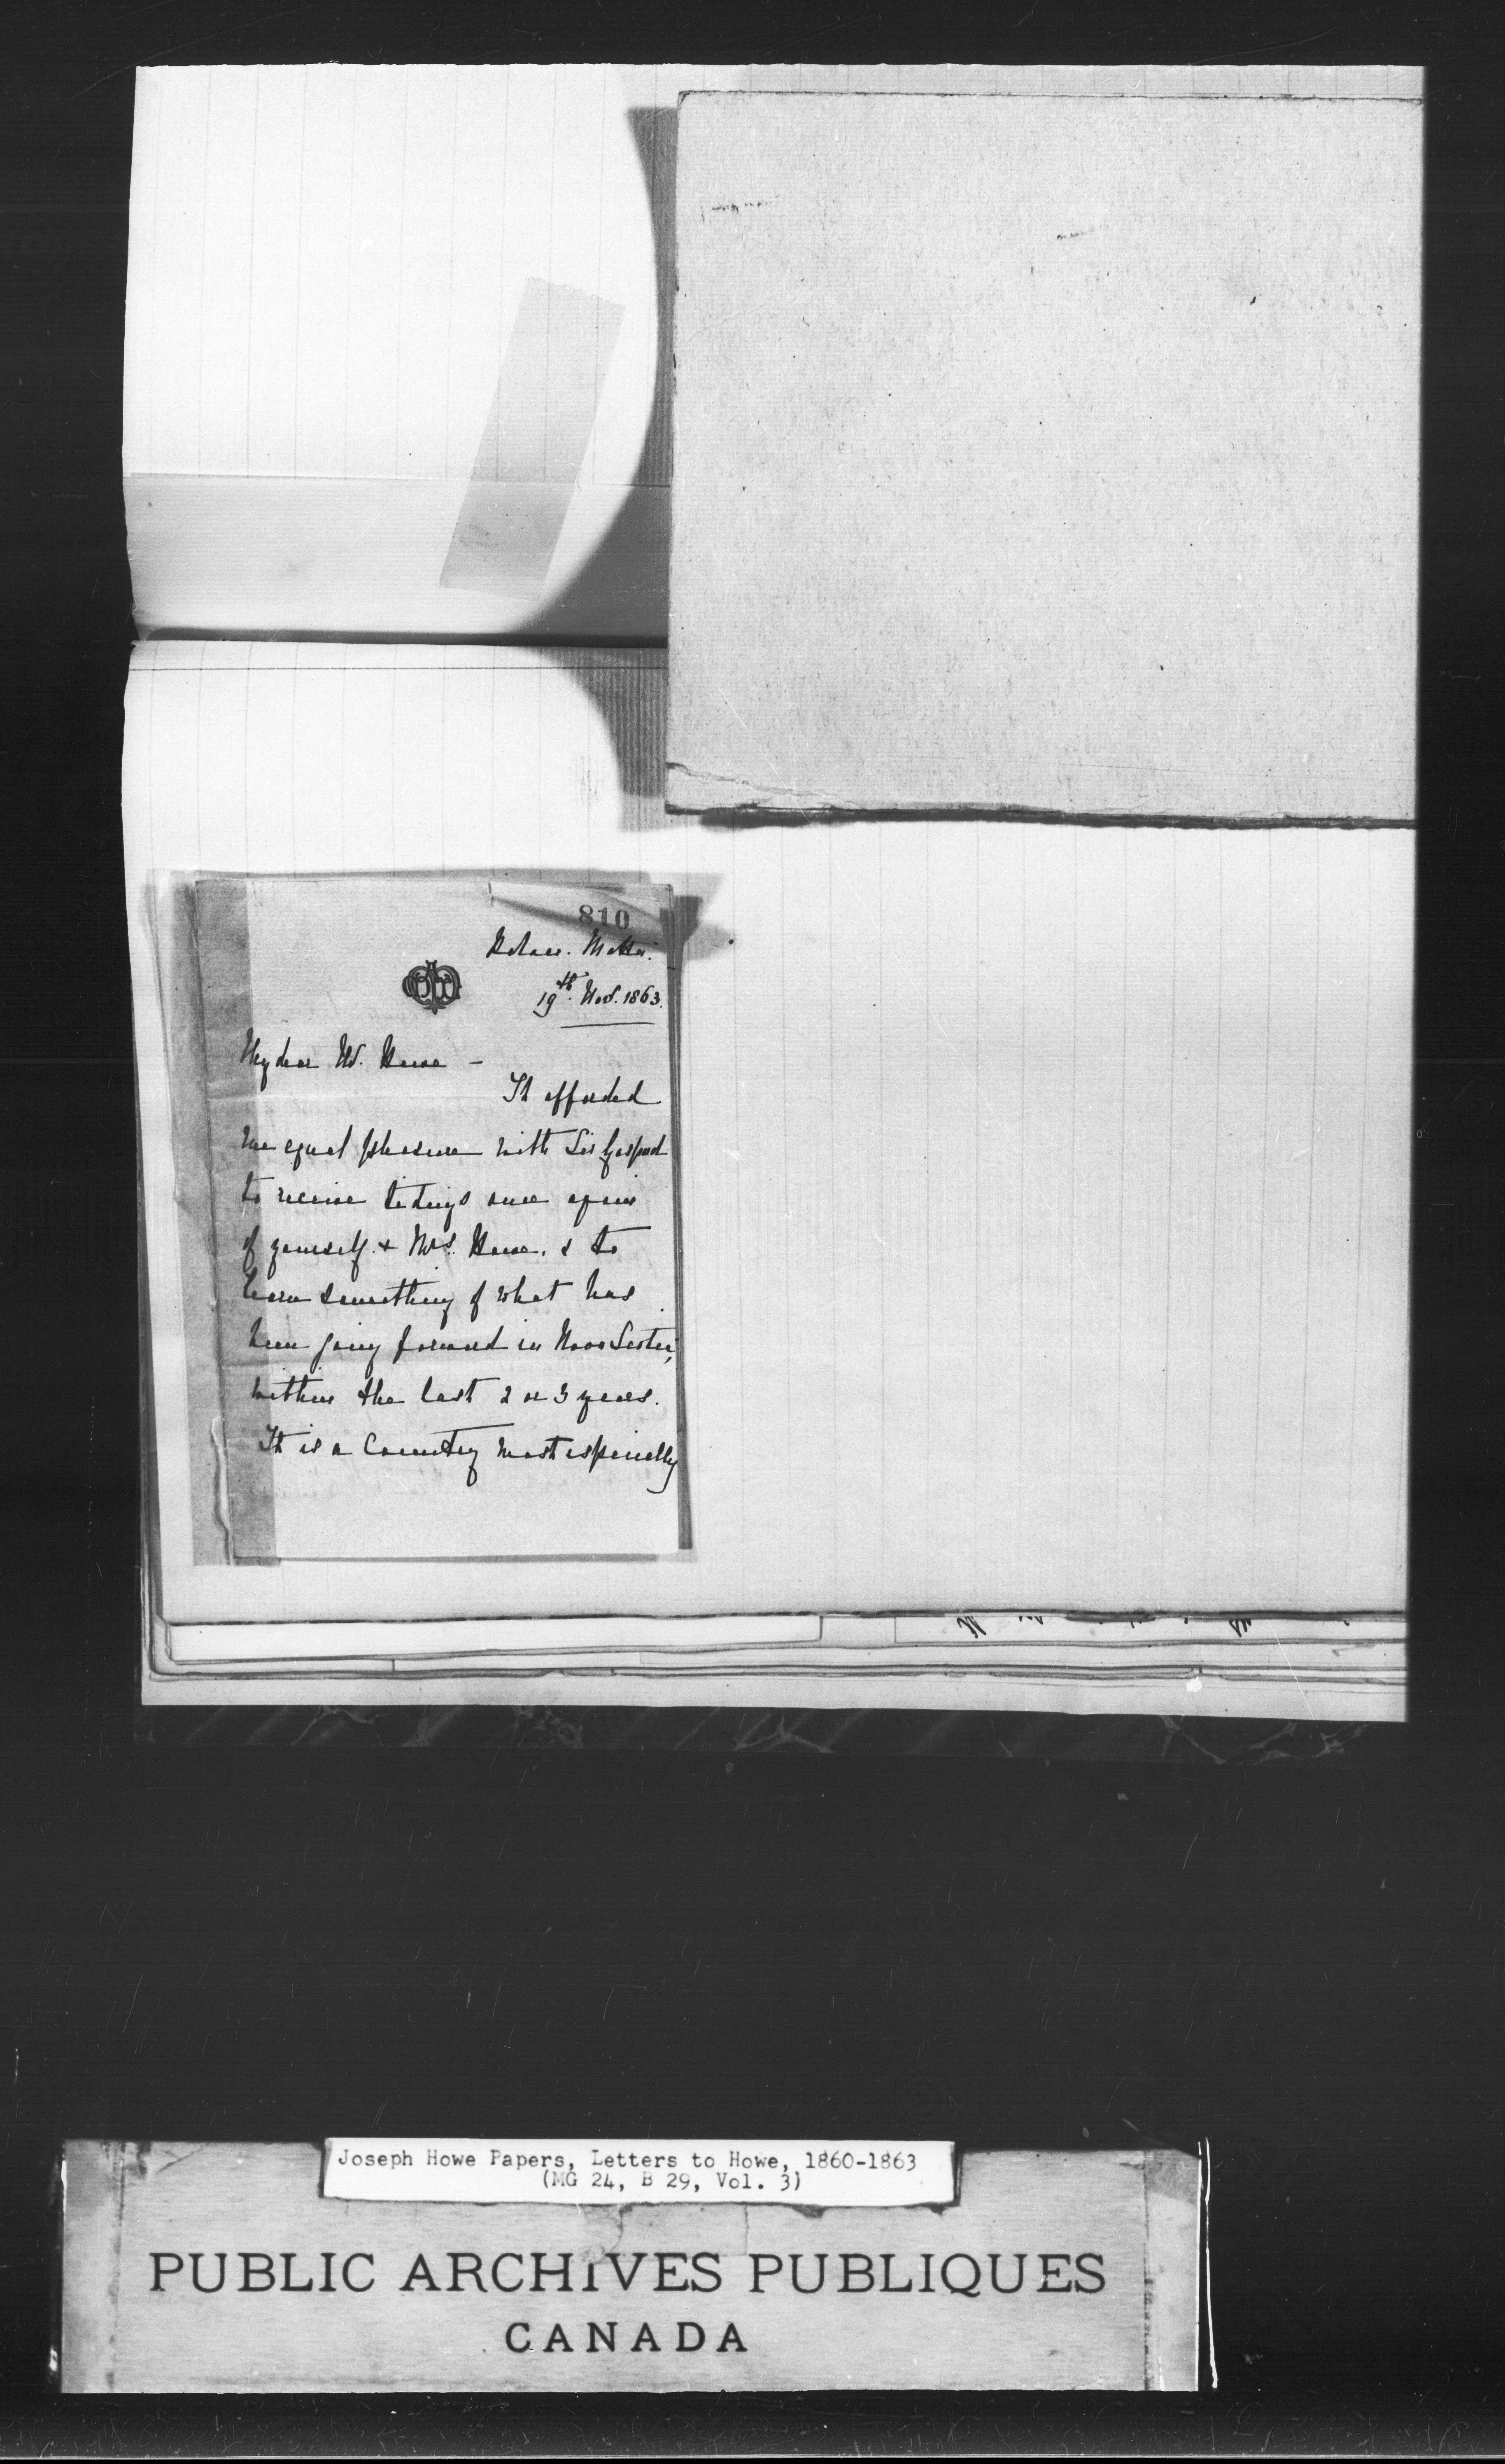 810
Palace. Malta.
19th. Nov. 1863.
My dear Mr. Howe –
It afforded
me equal pleasure with Sir Gaspard
to receive tidings once again
of yourself & Mrs. Howe. & to
learn something of what has
been going forward in Nova Scotia,
within the last 2 or 3 years.
It is a Country most especially
Joseph Howe Papers, Letters to Howe, 1860-1863
(MG 24, B 29, Vol. 3)
PUBLIC ARCHIVES PUBLIQUES
CANADA